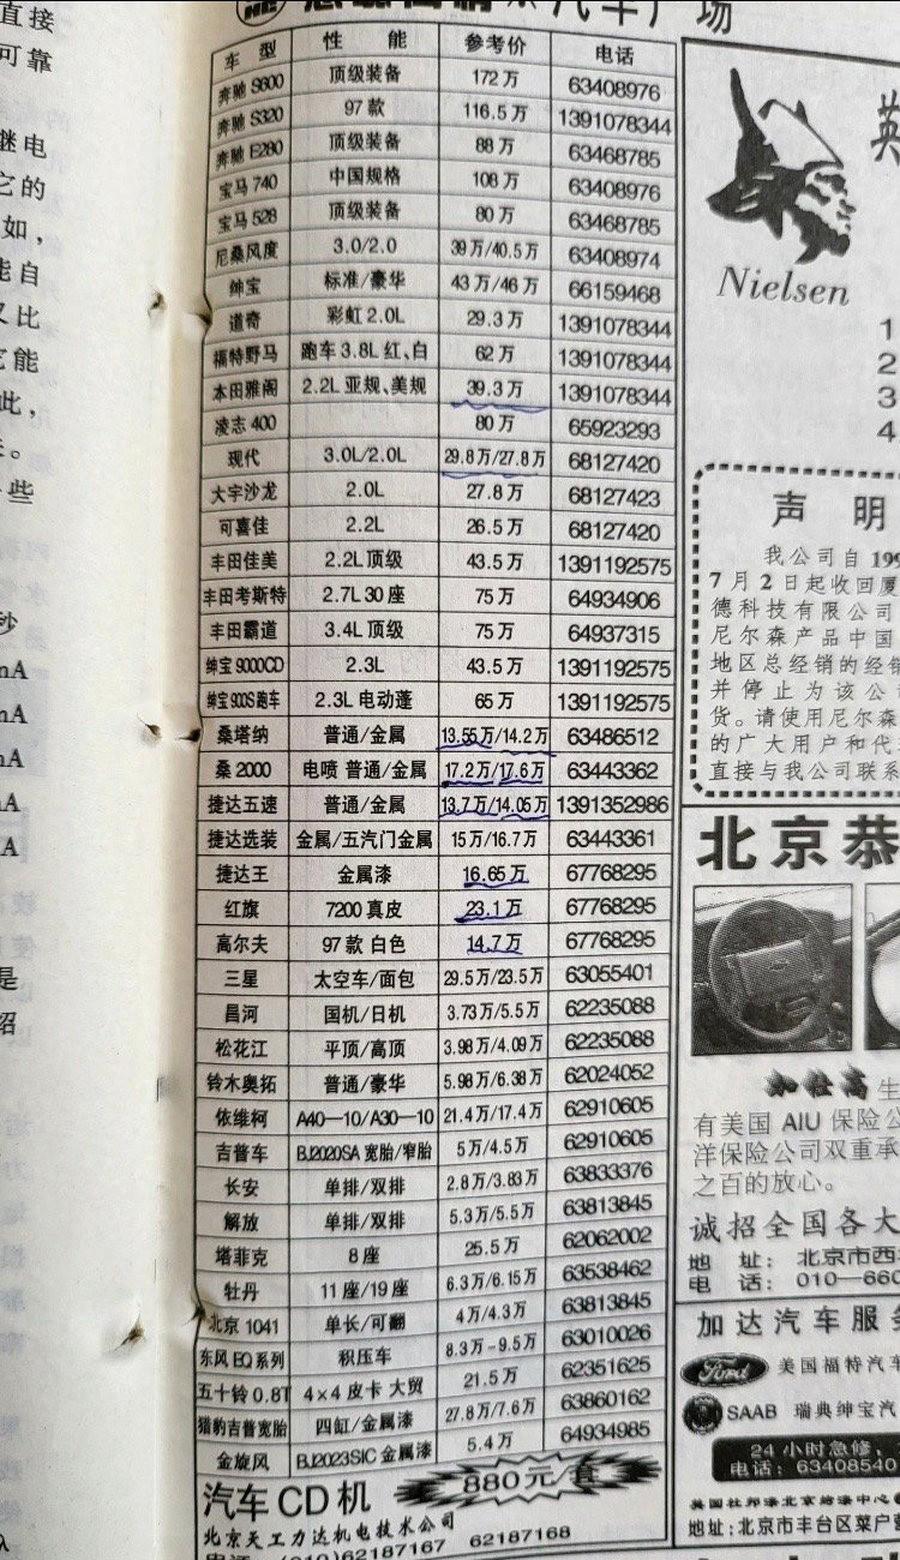 直接
可靠
继电
它的
如，
能自
又比
它能
此，
些
秒
mA
mA
mA
mA
A
是
绍
汽车广场
车 型 性 能 参考价 电话
奔驰 S600 顶级装备 172 万 63408976
奔驰 S320 97 款 116.5 万 1391078344
奔驰 E280 顶级装备 88 万 63468785
宝马 740 中国规格 108 万 63408976
宝马 528 顶级装备 80 万 63468785
尼桑风度 3.0/2.0 39 万/40.5 万 63408974
绅宝 标准/豪华 43 万/46 万 66159468
道奇 彩虹 2.0L 29.3 万 1391078344
福特野马 跑车 3.8L 红、白 62 万 1391078344
本田雅阁 2.2L 亚规、美规 39.3 万 1391078344
凌志 400 80 万 65923293
现代 3.0L/2.0L 29.8 万/27.8 万 68127420
大宇沙龙 2.0L 27.8 万 68127423
可喜佳 2.2L 26.5 万 68127420
丰田佳美 2.2L 顶级 43.5 万 1391192575
丰田考斯特 2.7L 30 座 75 万 64934906
丰田霸道 3.4L 顶级 75 万 64937315
绅宝 9000CD 2.3L 43.5 万 1391192575
绅宝 900S 跑车 2.3L 电动蓬 65 万 1391192575
桑塔纳 普通/金属 13.55 万/14.2 万 63486512
桑 2000 电喷 普通/金属 17.2 万/17.6 万 63443362
捷达五速 普通/金属 13.7 万/14.05 万 1391352986
捷达选装 金属/五汽门金属 15 万/16.7 万 63443361
捷达王 金属漆 16.65 万 67768295
红旗 7200 真皮 23.1 万 67768295
高尔夫 97 款 白色 14.7 万 67768295
三星 太空车/面包 29.5 万/23.5 万 63055401
昌河 国机/日机 3.73 万/5.5 万 62235088
松花江 平顶/高顶 3.98 万/4.09 万 62235088
铃木奥拓 普通/豪华 5.98 万/6.38 万 62024052
依维柯 A40—10/A30—10 21.4 万/17.4 万 62910605
吉普车 BJ2020SA 宽胎/窄胎 5 万/4.5 万 62910605
长安 单排/双排 2.8 万/3.83 万 63833376
解放 单排/双排 5.3 万/5.5 万 63813845
塔菲克 8 座 25.5 万 62062002
牡丹 11 座/19 座 6.3 万/6.15 万 63538462
北京 1041 单长/可翻 4 万/4.3 万 63813845
东风 EQ 系列 积压车 8.3 万-9.5 万 63010026
五十铃 0.8T 4×4 皮卡 大贸 21.5 万 62351625
猎豹吉普宽胎 四缸/金属漆 27.8 万/7.6 万 63860162
金旋风 BJ2023SIC 金属漆 5.4 万 64934985
汽车 CD 机 880 元/套
北京天工力达机电技术公司
(010)62187167 62187168
英
Nielsen
1
2
3
4
声 明
我公司自 199
7 月 2 日起收回厦
德科技有限公司
尼尔森产品中国
地区总经销的经销
并停止为该公司
货。请使用尼尔森
的广大用户和代
直接与我公司联系
北京恭
加仕高 生
有美国 AIU 保险公
洋保险公司双重承
之百的放心。
诚招全国各大
地 址：北京市西
电 话：010—660
加达汽车服务
Ford 美国福特汽车
SAAB 瑞典绅宝汽
24 小时急修、
电话：63408540
地址：北京市丰台区菜户营